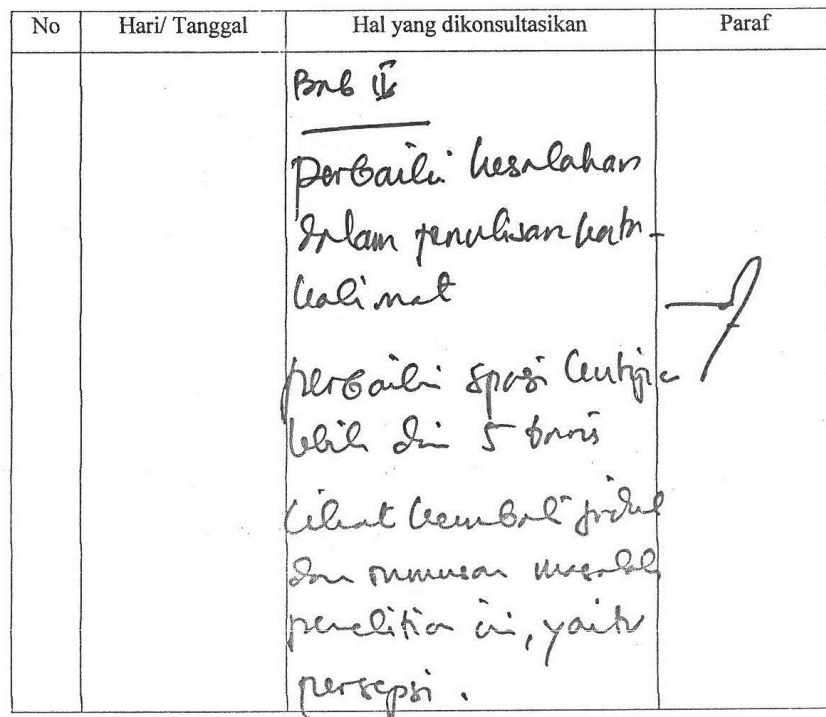 No Hari/ Tanggal Hal yang dikonsultasikan Paraf
Bab II
perbaiki kesalahan
dalam penulisan kata-
kalimat
perbaiki spasi kutipan
lebih dari 5 baris
lihat kembali judul
dan rumusan masalah
penelitian ini, yaitu
persepsi.